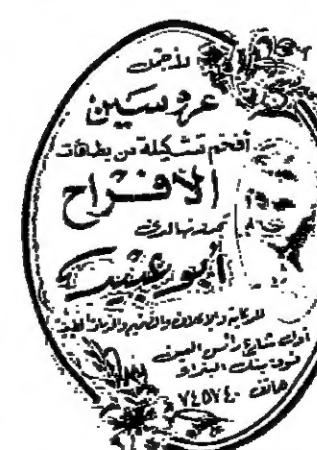 لأجمل
عروسين
أفخم تشكيلة من بطاقات
الأفراح
تجدونها لدى
أبو عنيب
للدعاية والإعلان والتصميم
أول شارع رأس العين
فوق بنك البتراء
هاتف ٧٤٥٧٤٠